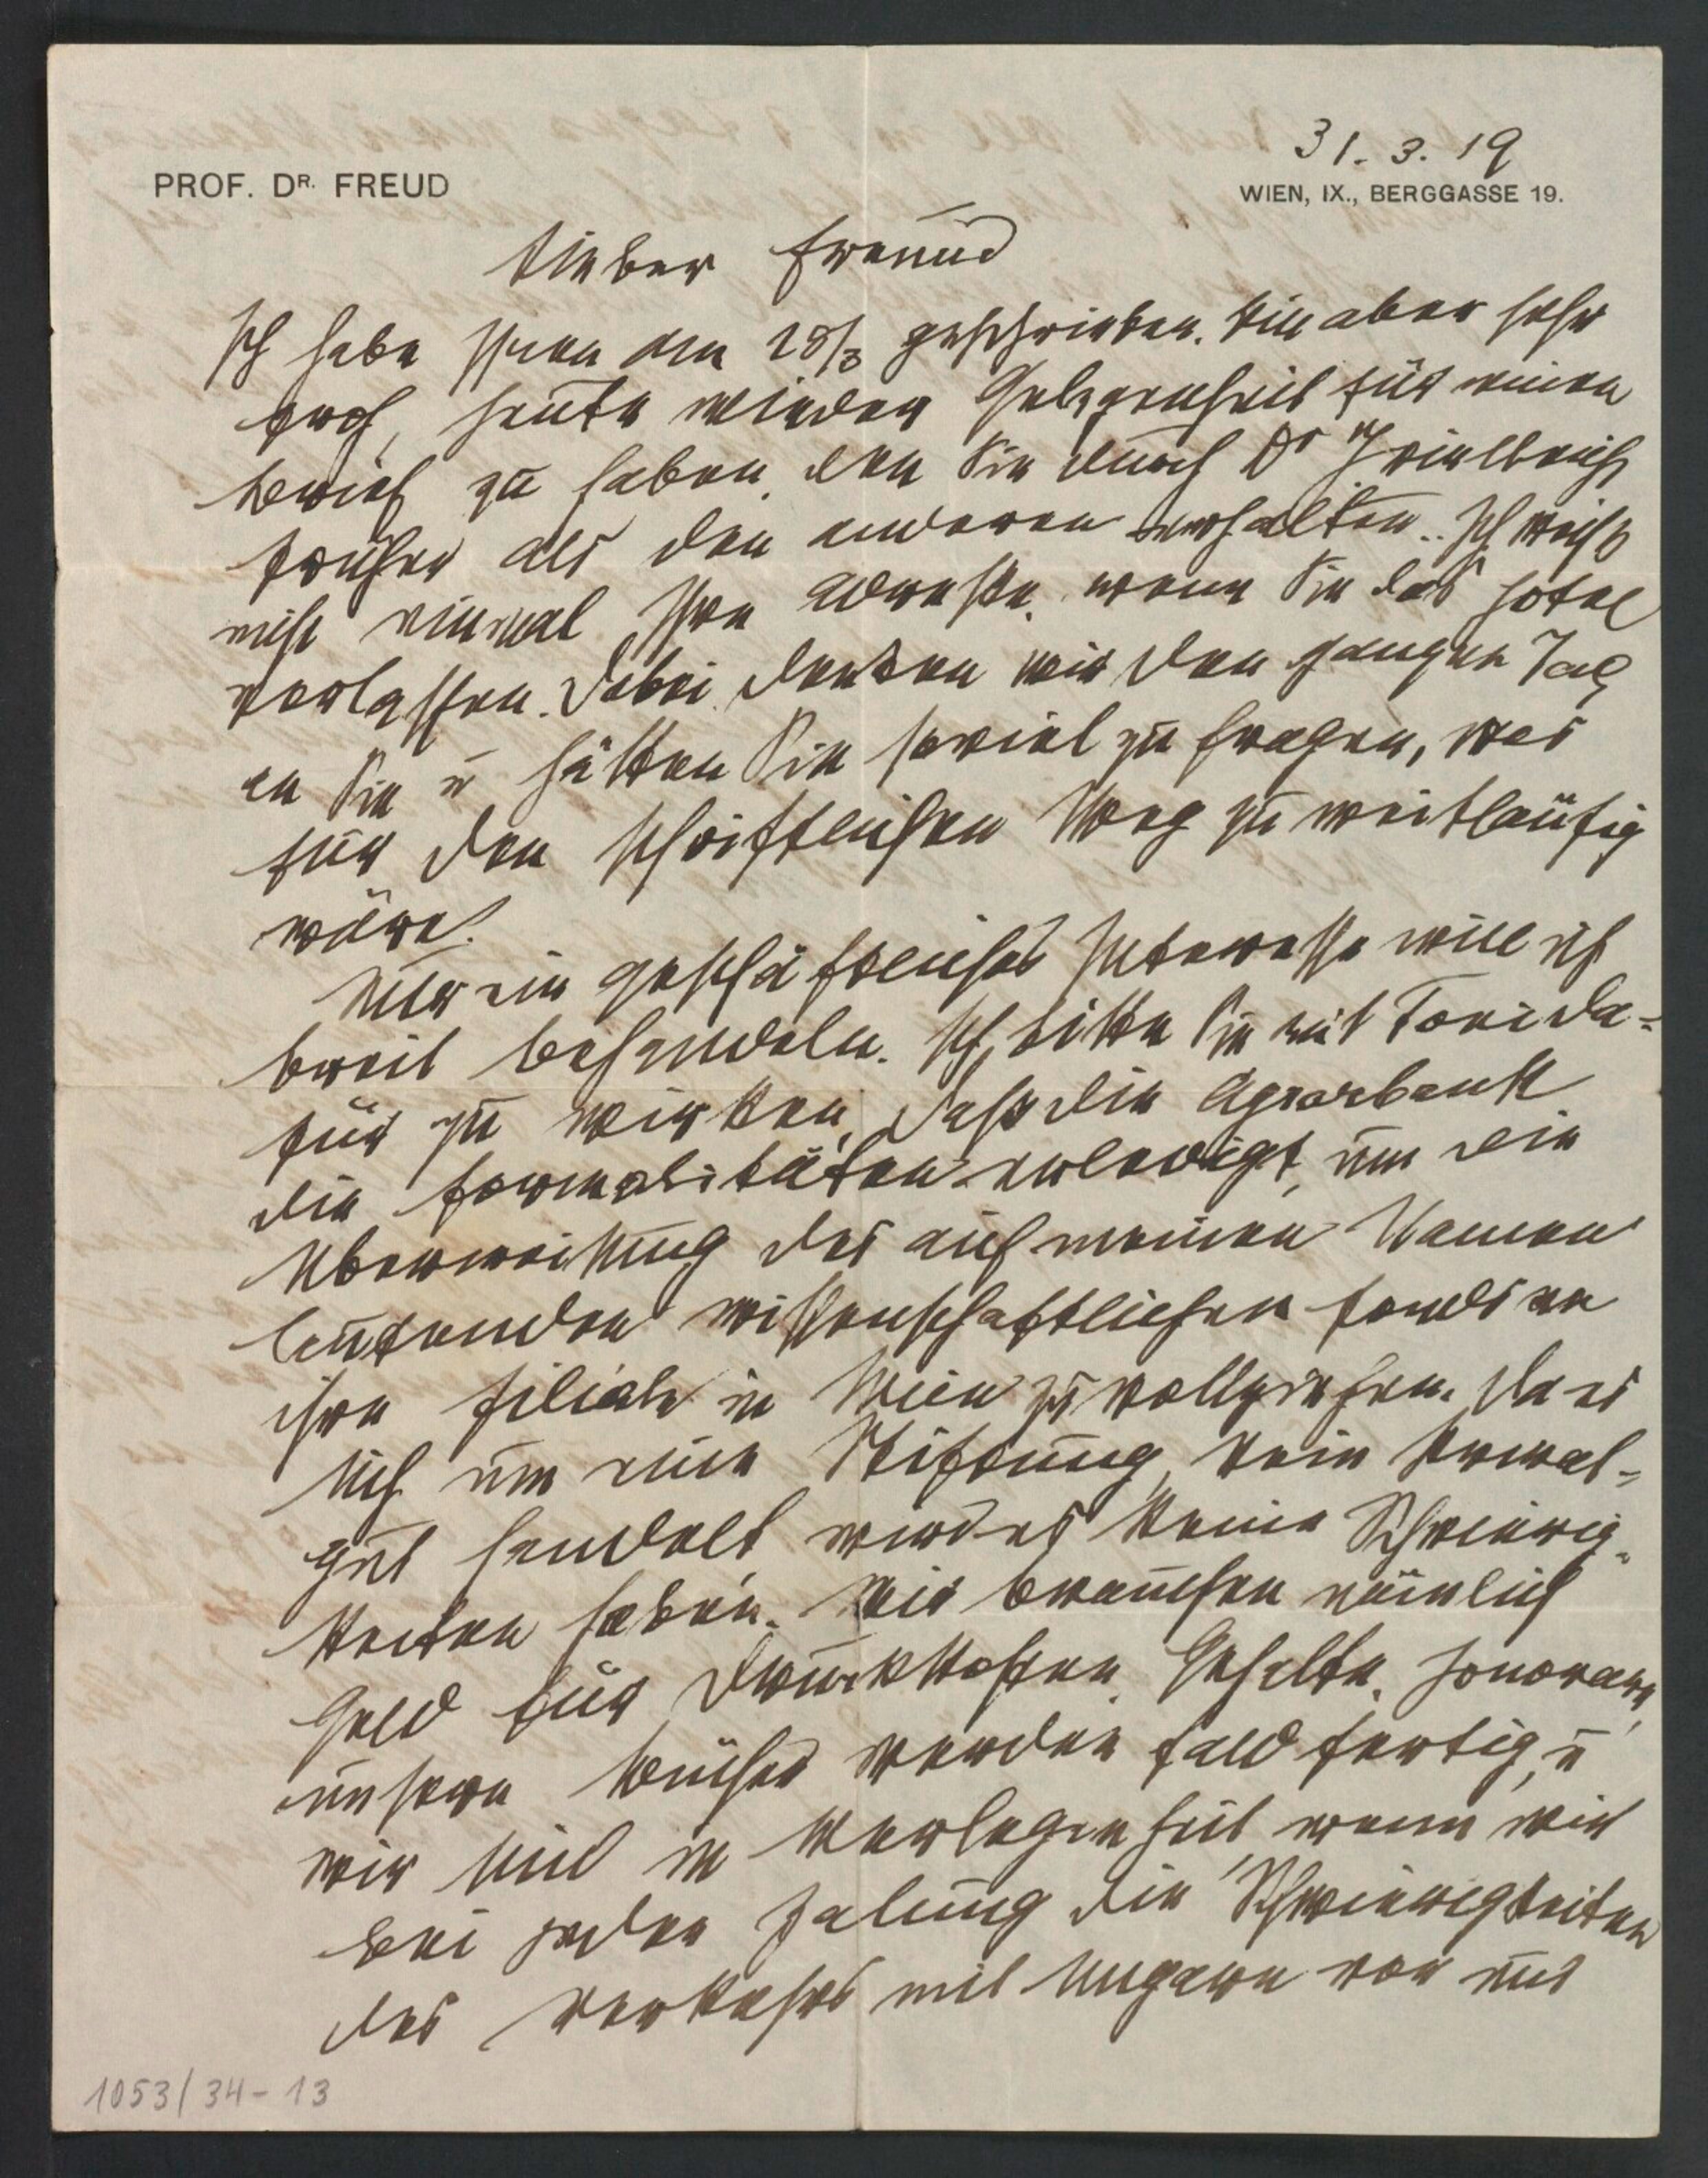 31.3.19
PROF. DR. FREUD
WIEN, IX., BERGGASSE 19.
Lieber Freund
Ich habe Ihnen am 28/3 geschrieben. Bin aber sehr
froh, heute wieder Gelegenheit für einen
Brief zu haben, den Sie durch Dr
früher als den anderen erhalten. Ich weiß
nicht einmal Ihre Adresse, wenn Sie das Hotel
verlassen. Dabei denken wir den ganzen Tag
an Sie u hätten Sie soviel zu fragen, was
für den schriftlichen Weg zu weitläufig
wäre.
Nur ein geschäftliches Interesse will ich
breit behandeln. Ich bitte Sie mit Toni da-
für zu wirken, daß die Agrarbank
die Formalitäten erledigt, um die
Überweisung des auf meinen Namen
lautenden wissenschaftlichen Fonds an
ihre Filiale in Wien zu vollziehen. Da es
sich um eine Stiftung, kein Privat-
gut handelt, wird es keine Schwierig-
keiten haben. Wir brauchen nämlich
Geld für Druckkosten, Gehalte, Honorare,
unsere Bücher werden bald fertig, u
wir sind in Verlegenheit, wenn wir
bei jeder Zalung die Schwierigkeiten
des Verkehrs mit Ungarn vor uns
1053/34-13